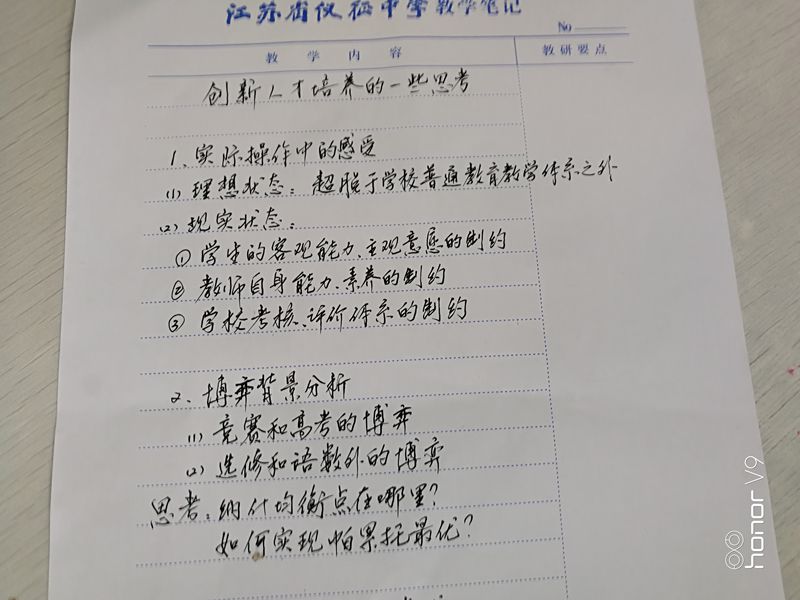 江苏省仪征中学教学笔记
No
教 学 内 容 教研要点
创新人才培养的一些思考
1、实际操作中的感受
(1) 理想状态：超脱于学校普通教育教学体系之外
(2) 现实状态：
① 学生的客观能力、主观意愿的制约
② 教师自身能力、素养的制约
③ 学校考核、评价体系的制约
2、博弈背景分析
(1) 竞赛和高考的博弈
(2) 选修和语数外的博弈
思考：纳什均衡点在哪里？
如何实现帕累托最优？
honor V9